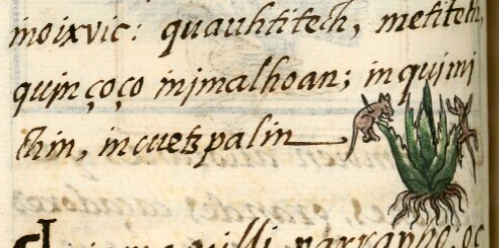 inoixvic: quauhtitech, metitech,
quinçoço inimalhoan; in quimi
chin, in cuetzpalin